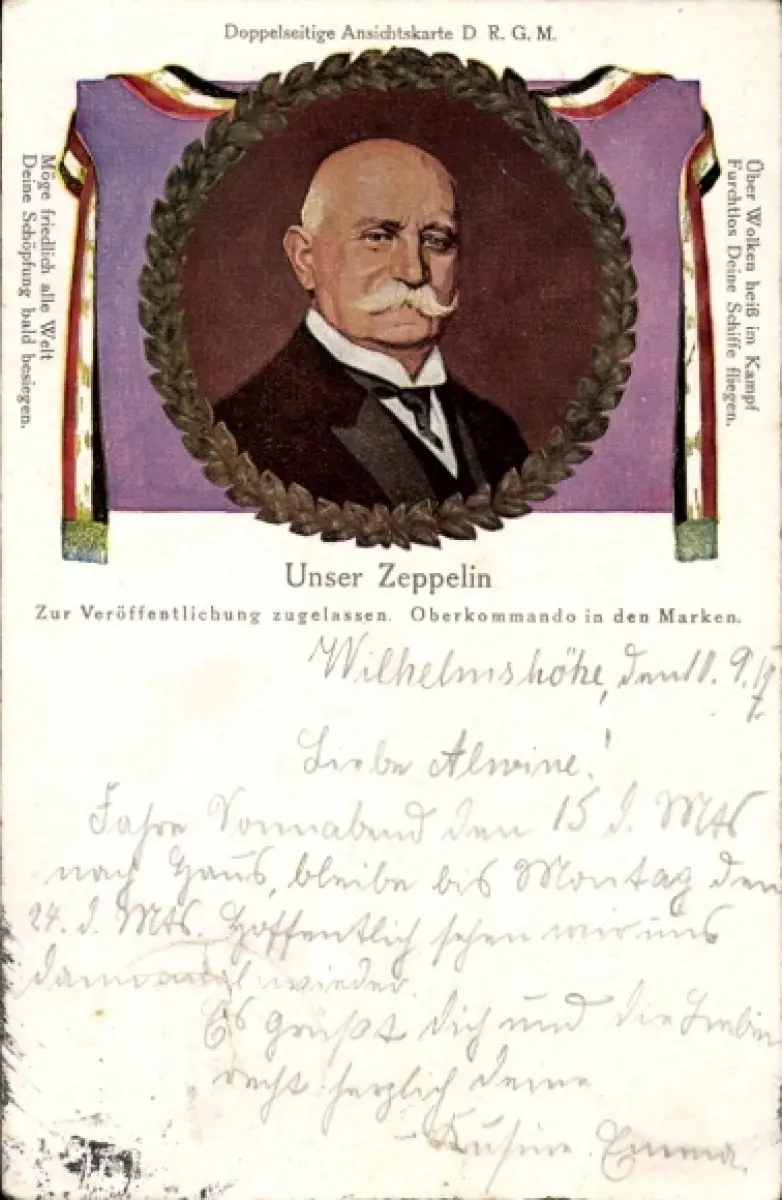 Doppelseitige Ansichtskarte D. R. G. M.
Möge friedlich alle Welt
Deine Schöpfung bald besiegen.
Über Wolken heiß im Kampf
Furchtlos Deine Schiffe fliegen.
Unser Zeppelin
Zur Veröffentlichung zugelassen. Oberkommando in den Marken.
Wilhelmshöhe, den 9./9
Liebe Alwine!
Fahre Sonnabend den 15 d. Mts
nach Haus, bleibe bis Montag den
24. d. Mts. Hoffentlich sehen wir uns
dann mal wieder.
Es grüßt dich und die
recht herzlich deine
Kusine Emma.